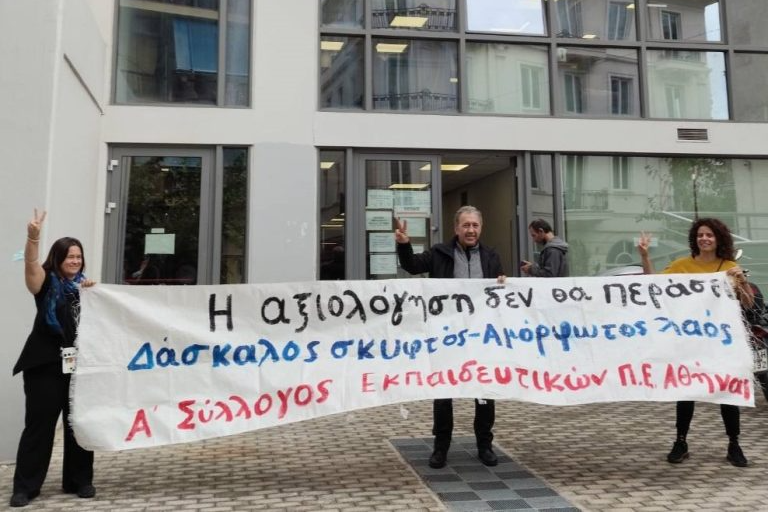 Η αξιολόγηση δεν θα περάσει
Δάσκαλος σκυφτός-Αμόρφωτος λαός
Α' Σύλλογος Εκπαιδευτικών Π.Ε. Αθήνας